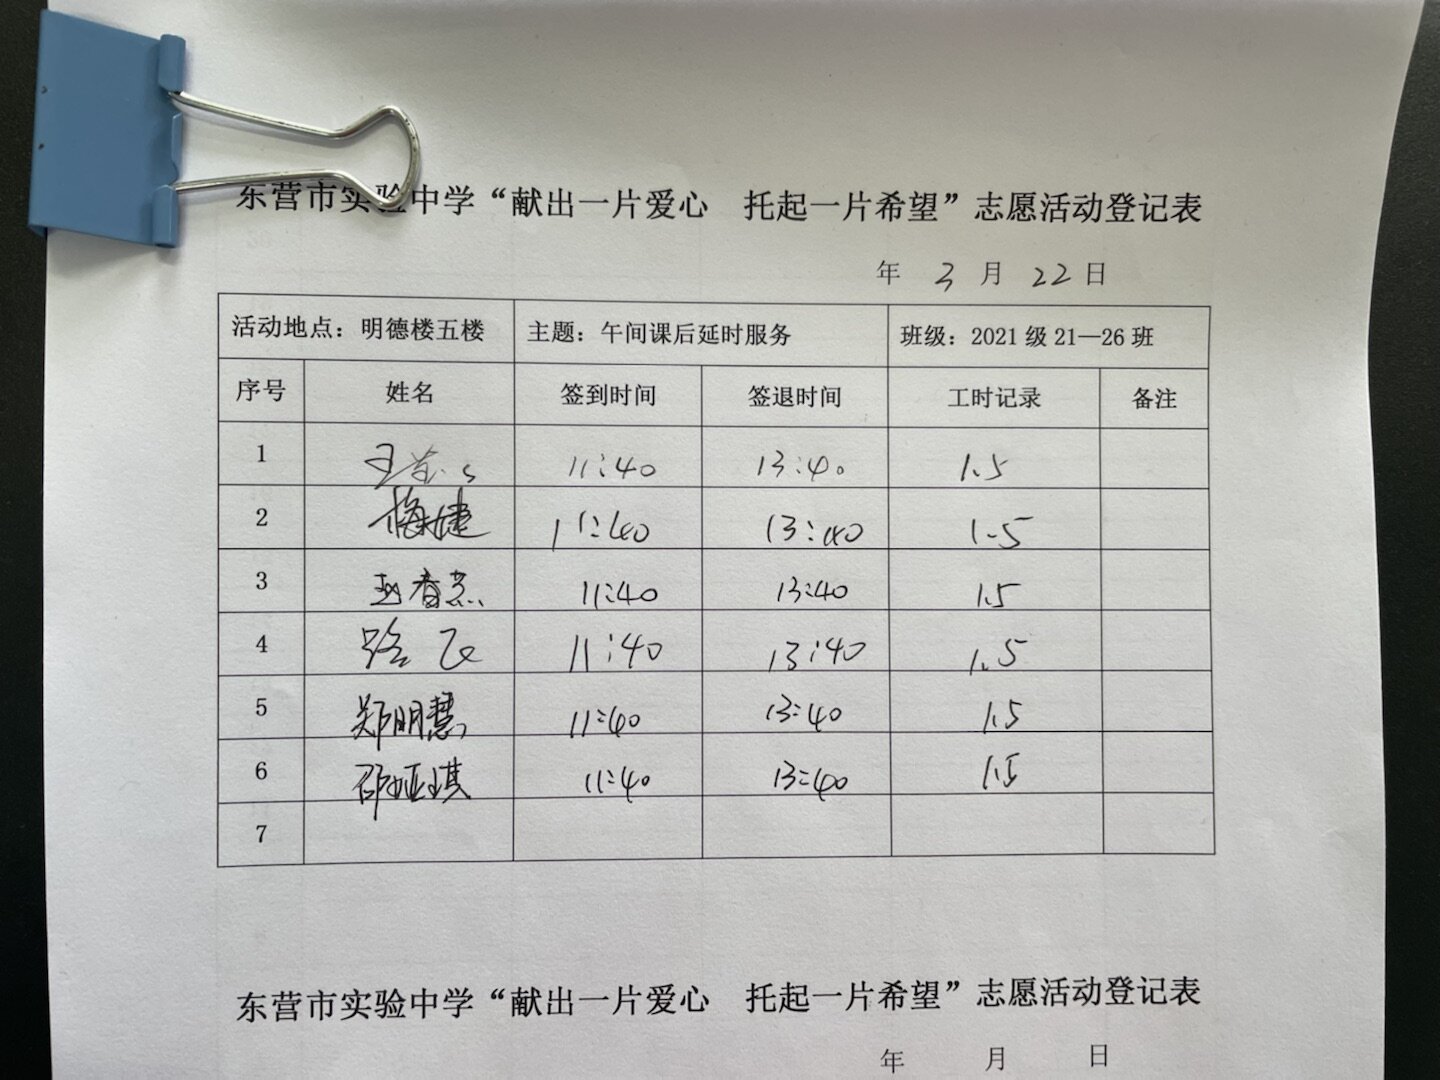 东营市实验中学“献出一片爱心 托起一片希望”志愿活动登记表
年 3 月 22 日
活动地点：明德楼五楼 主题：午间课后延时服务 班级：2021级21—26班
序号 姓名 签到时间 签退时间 工时记录 备注
1 王 11:40 13:40 1.5
2 梅婕 11:40 13:40 1.5
3 赵春 11:40 13:40 1.5
4 路飞 11:40 13:40 1.5
5 郑明慧 11:40 13:40 1.5
6 邵娅琪 11:40 13:40 1.5
7
东营市实验中学“献出一片爱心 托起一片希望”志愿活动登记表
年 月 日